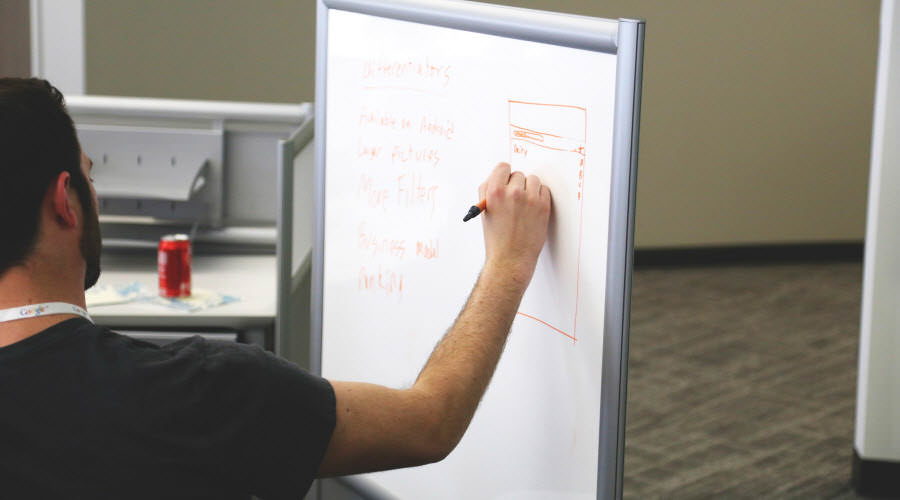 Differentiators
Available on Android
Larger pictures
More Filters
Business model
Ranking
Google